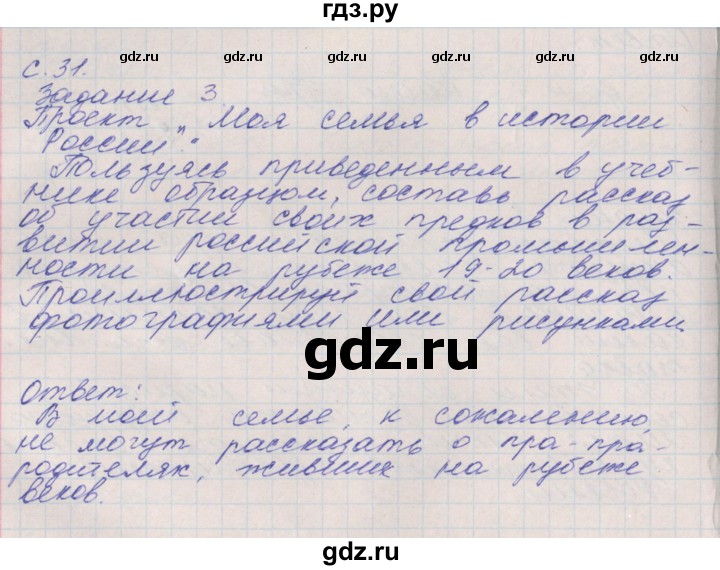 гдз.ру
gdz.ru gdz.ru gdz.ru gdz.ru
с. 31.
Задание 3
Проект „Моя семья в истории
России".
Пользуясь приведенным в учеб-
нике образцом, составь рассказ
об участии своих предков в раз-
витии российской промышлен-
ности на рубеже 19-20 веков.
Проиллюстрируй свой рассказ
фотографиями или рисунками
gdz.ru
Ответ:
В моей семье, к сожалению,
не могут рассказать о пра-пра-
родителях, живших на рубеже
веков.
gdz.ru gdz.ru gdz.ru gdz.ru
gdz.ru